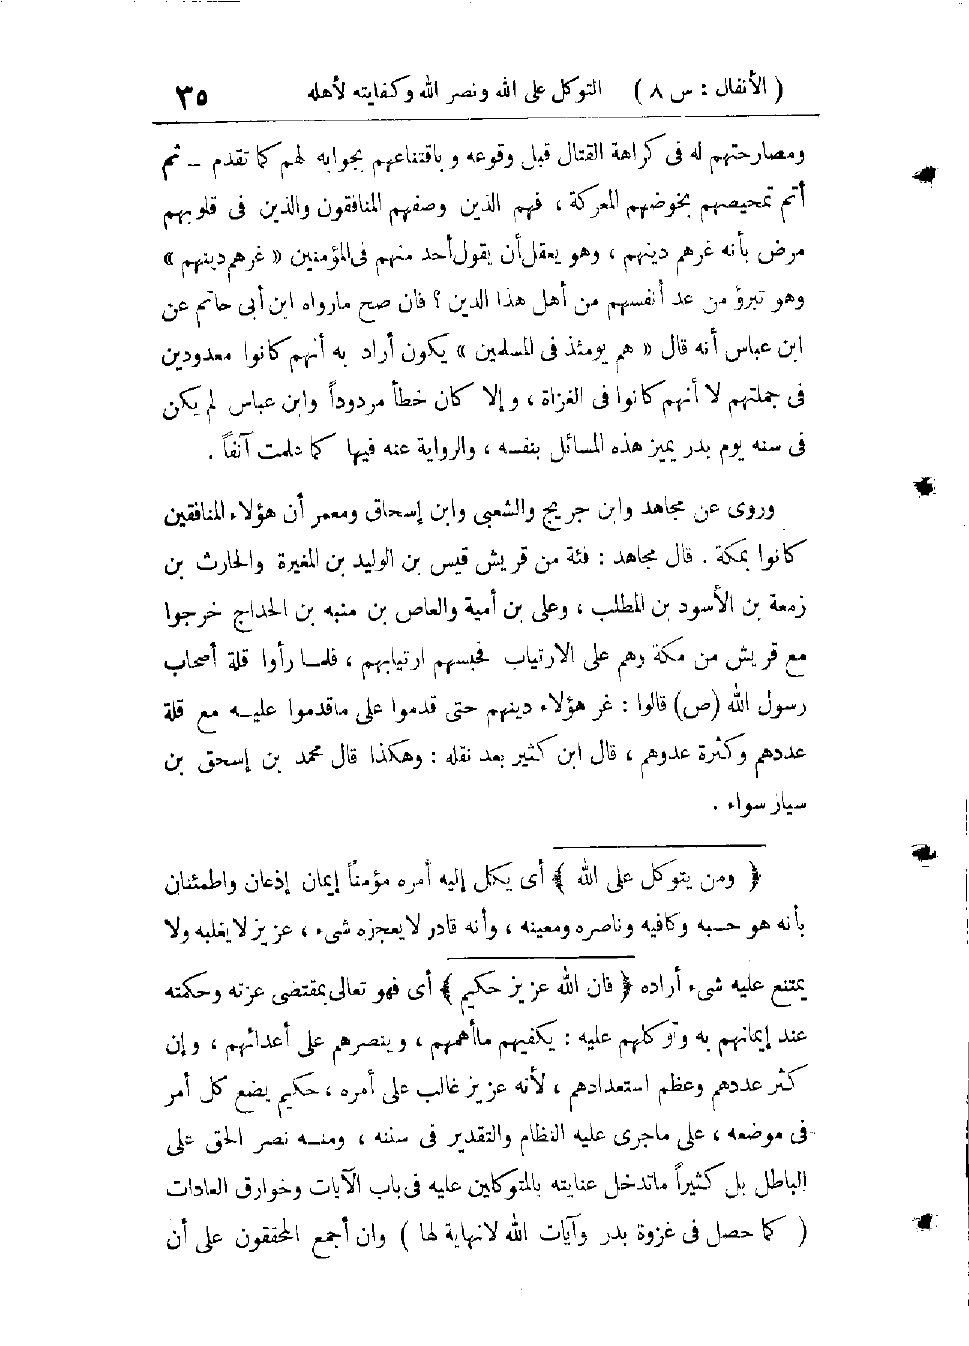 ( الأنفال : س ٨ ) التوكل على الله ونصر الله وكفايته لأهله ٣٥
ومصارحتهم له فى كراهة القتال قبل وقوعه و باقتناعهم بجوابه لهم كما تقدم ــ ثم
أتم تمحيصهم بخوضهم المعركة ، فهم الذين وصفهم المنافقون والذين فى قلوبهم
مرض بأنه غرهم دينهم ، وهو يعقل أن يقول أحد منهم فى المؤمنين « غرهم دينهم »
وهو تبرؤ من عد أنفسهم من أهل هذا الدين ؟ فان صح مارواه ابن أبى حاتم عن
ابن عباس أنه قال « هم يومئذ فى المسلمين » يكون أراد به أنهم كانوا معدودين
فى جملتهم لا أنهم كانوا فى الغزاة ، و إلا كان خطأ مردوداً وابن عباس لم يكن
فى سنه يوم بدر يميز هذه المسائل بنفسه ، والرواية عنه فيها كما علمت آنفاً .
وروى عن مجاهد وابن جريج والشعبى وابن إسحاق ومعمر أن هؤلاء المنافقين
كانوا بمكة . قال مجاهد : فئة من قريش قيس بن الوليد بن المغيرة والحارث بن
زمعة بن الأسود بن المطلب ، وعلى بن أمية والعاص بن منبه بن الحداج خرجوا
مع قريش من مكة وهم على الارتياب فحبسهم ارتيابهم ، فلما رأوا قلة أصحاب
رسول الله (ص) قالوا : غر هؤلاء دينهم حتى قدموا على ماقدموا عليه مع قلة
عددهم وكثرة عدوهم ، قال ابن كثير بعد نقله : وهكذا قال محمد بن إسحق بن
سياز سواء .
﴿ ومن يتوكل على الله ﴾ أى يكل إليه أمره مؤمناً إيمان إذعان واطمئنان
بأنه هو حسبه وكافيه وناصره ومعينه ، وأنه قادر لا يعجزه شىء ، عزيز لا يغلبه ولا
يمتنع عليه شىء أراده ﴿ فان الله عزيز حكيم ﴾ أى فهو تعالى بمقتضى عزته وحكمته
عند إيمانهم به وتوكلهم عليه : يكفيهم ماأهمهم ، وينصرهم على أعدائهم ، وإن
كثر عددهم وعظم استعدادهم ، لأنه عزيز غالب على أمره ، حكيم يضع كل أمر
فى موضعه ، على ماجرى عليه النظام والتقدير فى سننه ، ومنه نصر الحق على
الباطل بل كثيراً ماتدخل عنايته بالمتوكلين عليه فى باب الآيات وخوارق العادات
( كما حصل فى غزوة بدر وآيات الله لانهاية لها ) وان أجمع المحققون على أن